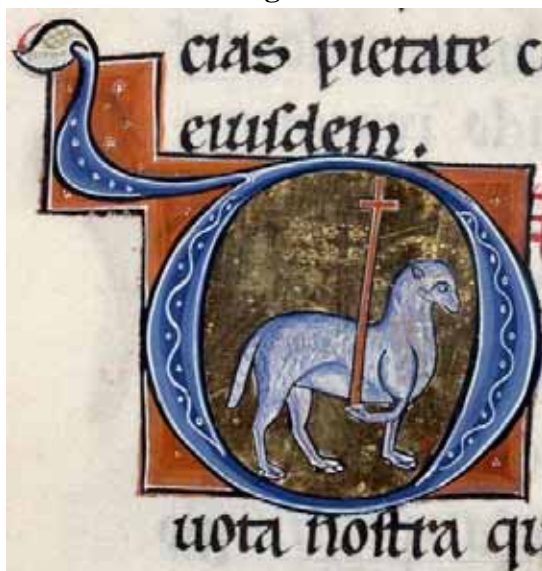 cias pietate c
eiuſdem.
D
uota noſtra qu